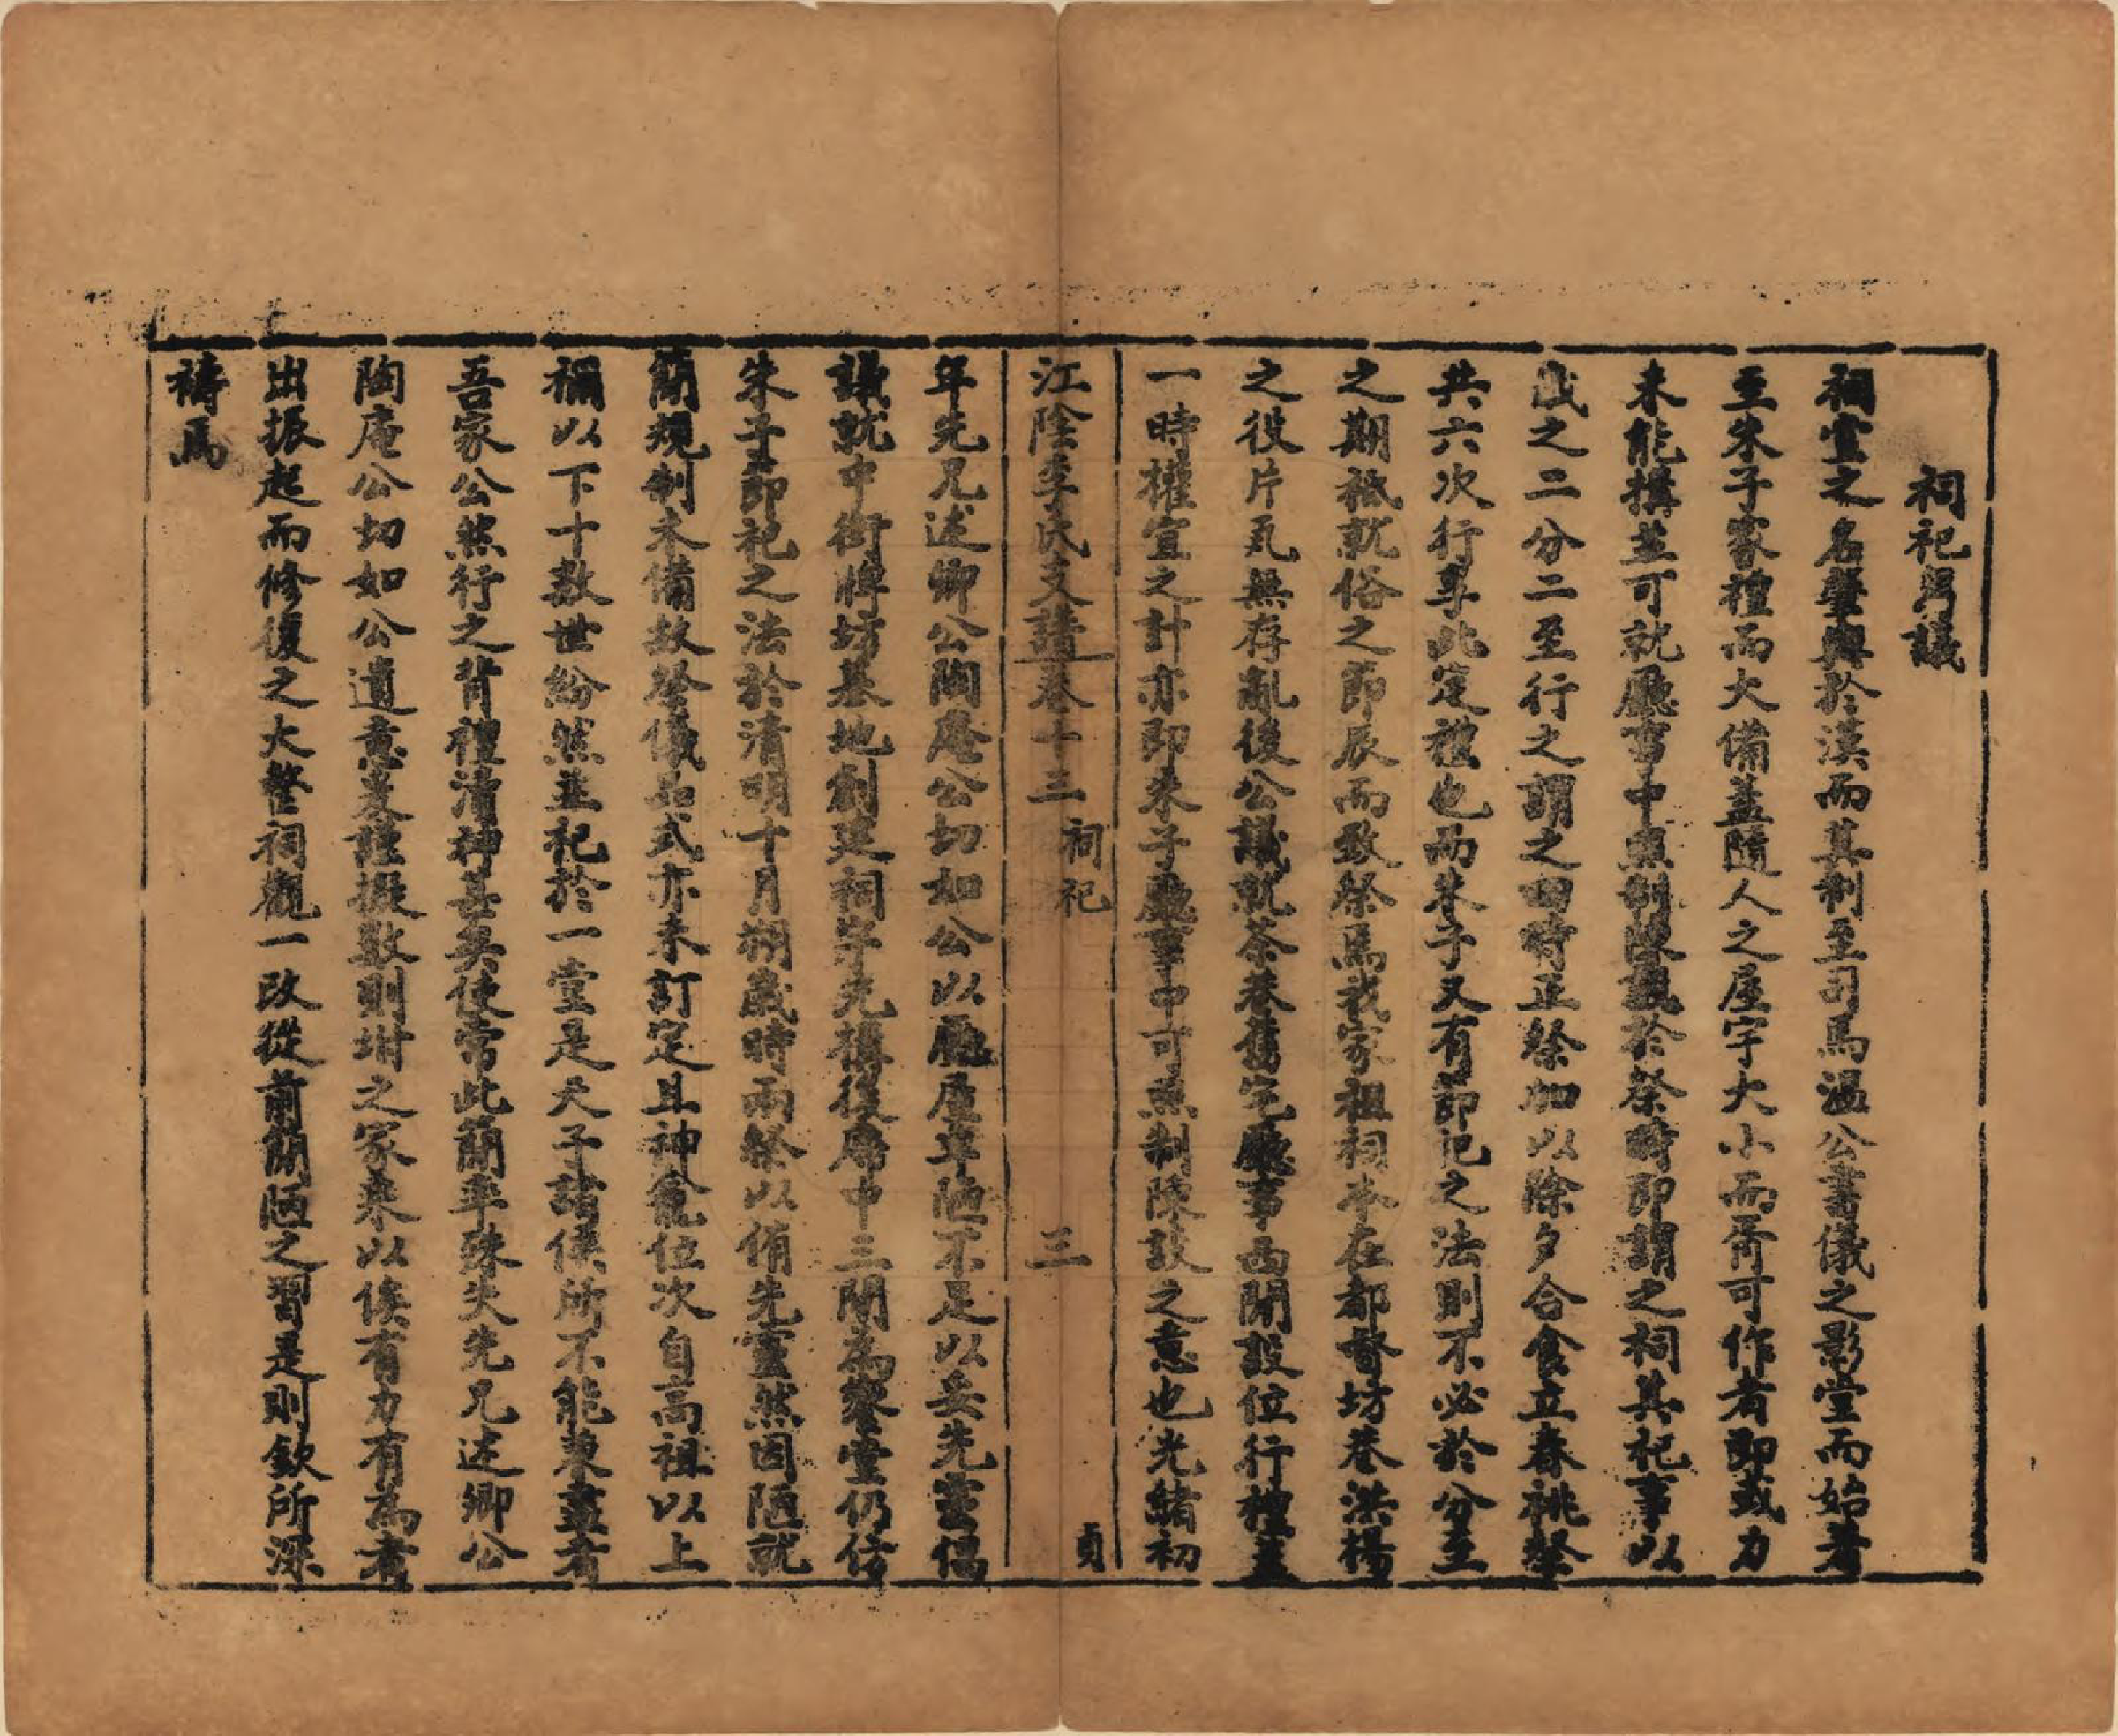 祠祀芻議
祠堂之名肇興於漢而其制至司馬溫公書儀之影堂而始著
至朱子家禮而大備蓋隨人之屋宇大小而胥可作者即或力
未能搆並可就廳事中照制陳設於祭時即謂之祠其祀事以
歲之二分二至行之謂之四時正祭加以除夕合食立春祧祭
共六次行享此定禮也而朱子又有節祀之法則不必於分至
之期祗就俗之節辰而致祭焉我家祖祠本在都督坊巷洪楊
之役片瓦無存亂後公議就茶巷舊宅廳事西間設位行禮蓋
一時權宜之計亦即朱子廳事中可照制陳設之意也光緒初
江陰李氏支譜卷十三 祠祀 三 貞
年先兄述卿公陶庵公切如公以廳屋卑陋不足以妥先靈倡
議就中街牌坊基地創建祠宇先搆後席中三間為饗堂仍仿
朱子節祀之法於清明十月朔歲時兩祭以侑先靈然因陋就
簡規制未備故祭儀品式亦未訂定且神龕位次自高祖以上
禰以下十數世紛然並祀於一堂是天子諸侯所不能東蓋者
吾家公然行之背禮瀆神甚矣使常此簡率殊失先兄述卿公
陶庵公切如公遺意爰謹擬數則坿之家乘以俟有力有為者
出振起而修復之大整祠觀一改從前簡陋之習是則欽所深
禱焉